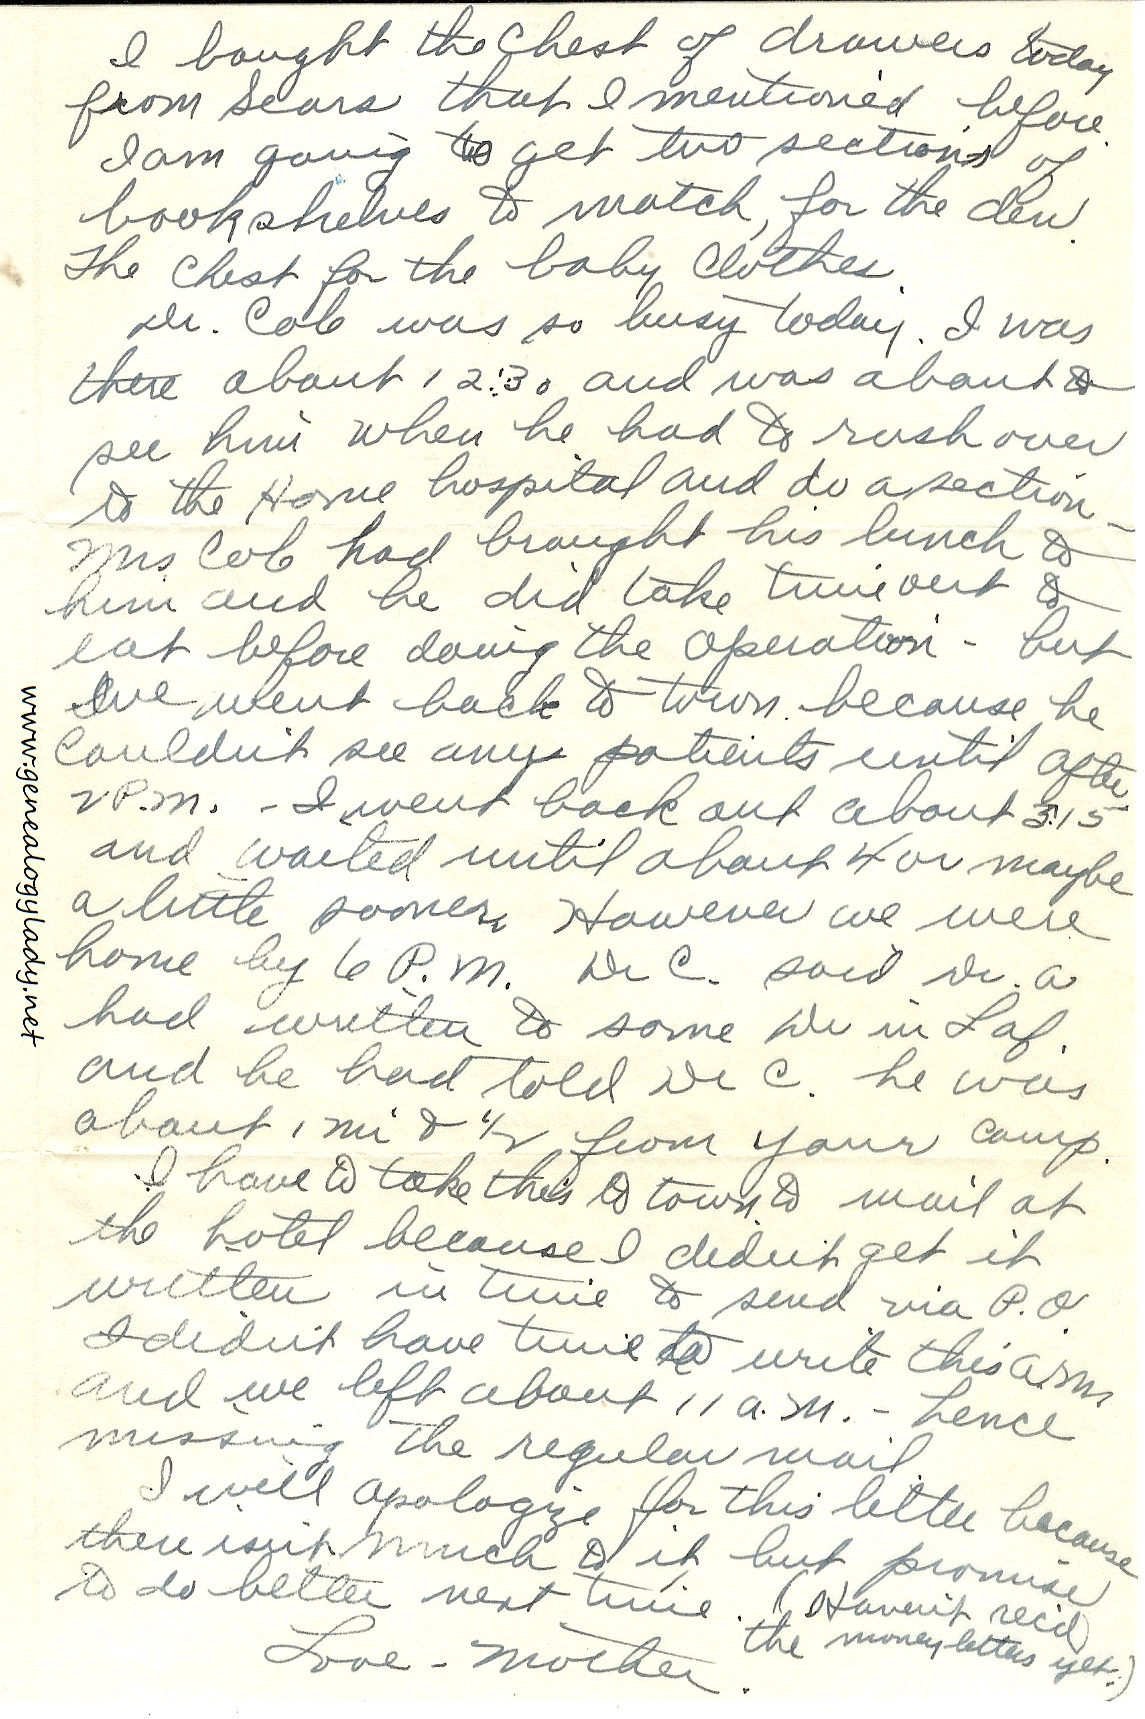 I bought the Chest of drawers today
from Sears that I mentioned before.
I am going to get two sections of
bookshelves to match, for the den.
The Chest for the baby Clothes.
Dr. Cole was so busy today. I was
there about 12:30 and was about to
see him when he had to rush over
to the Home hospital and do a section –
Mrs Cole had brought his lunch to
him and he did take time out to
eat before doing the operation – but
we went back to town because he
couldn't see any patients until after
2 P.M. – I went back out about 3:15
and waited until about 4 or maybe
a little sooner. However we were
home by 6 P.M. Dr C. said Dr. A
had written to some Dr in Laf.
and he had told Dr C. he was
about 1 mi & 1/2 from your camp.
I have to take this to town to mail at
the hotel because I didn't get it
written in time to send via P.O.
I didn't have time to write this A.M.
and we left about 11 A.M. – hence
missing the regular mail
I will apologize for this letter because
there isn't much to it but promise
to do better next time. (Haven't rec'd
the money letters yet.)
Love – Mother.
www.genealogylady.net